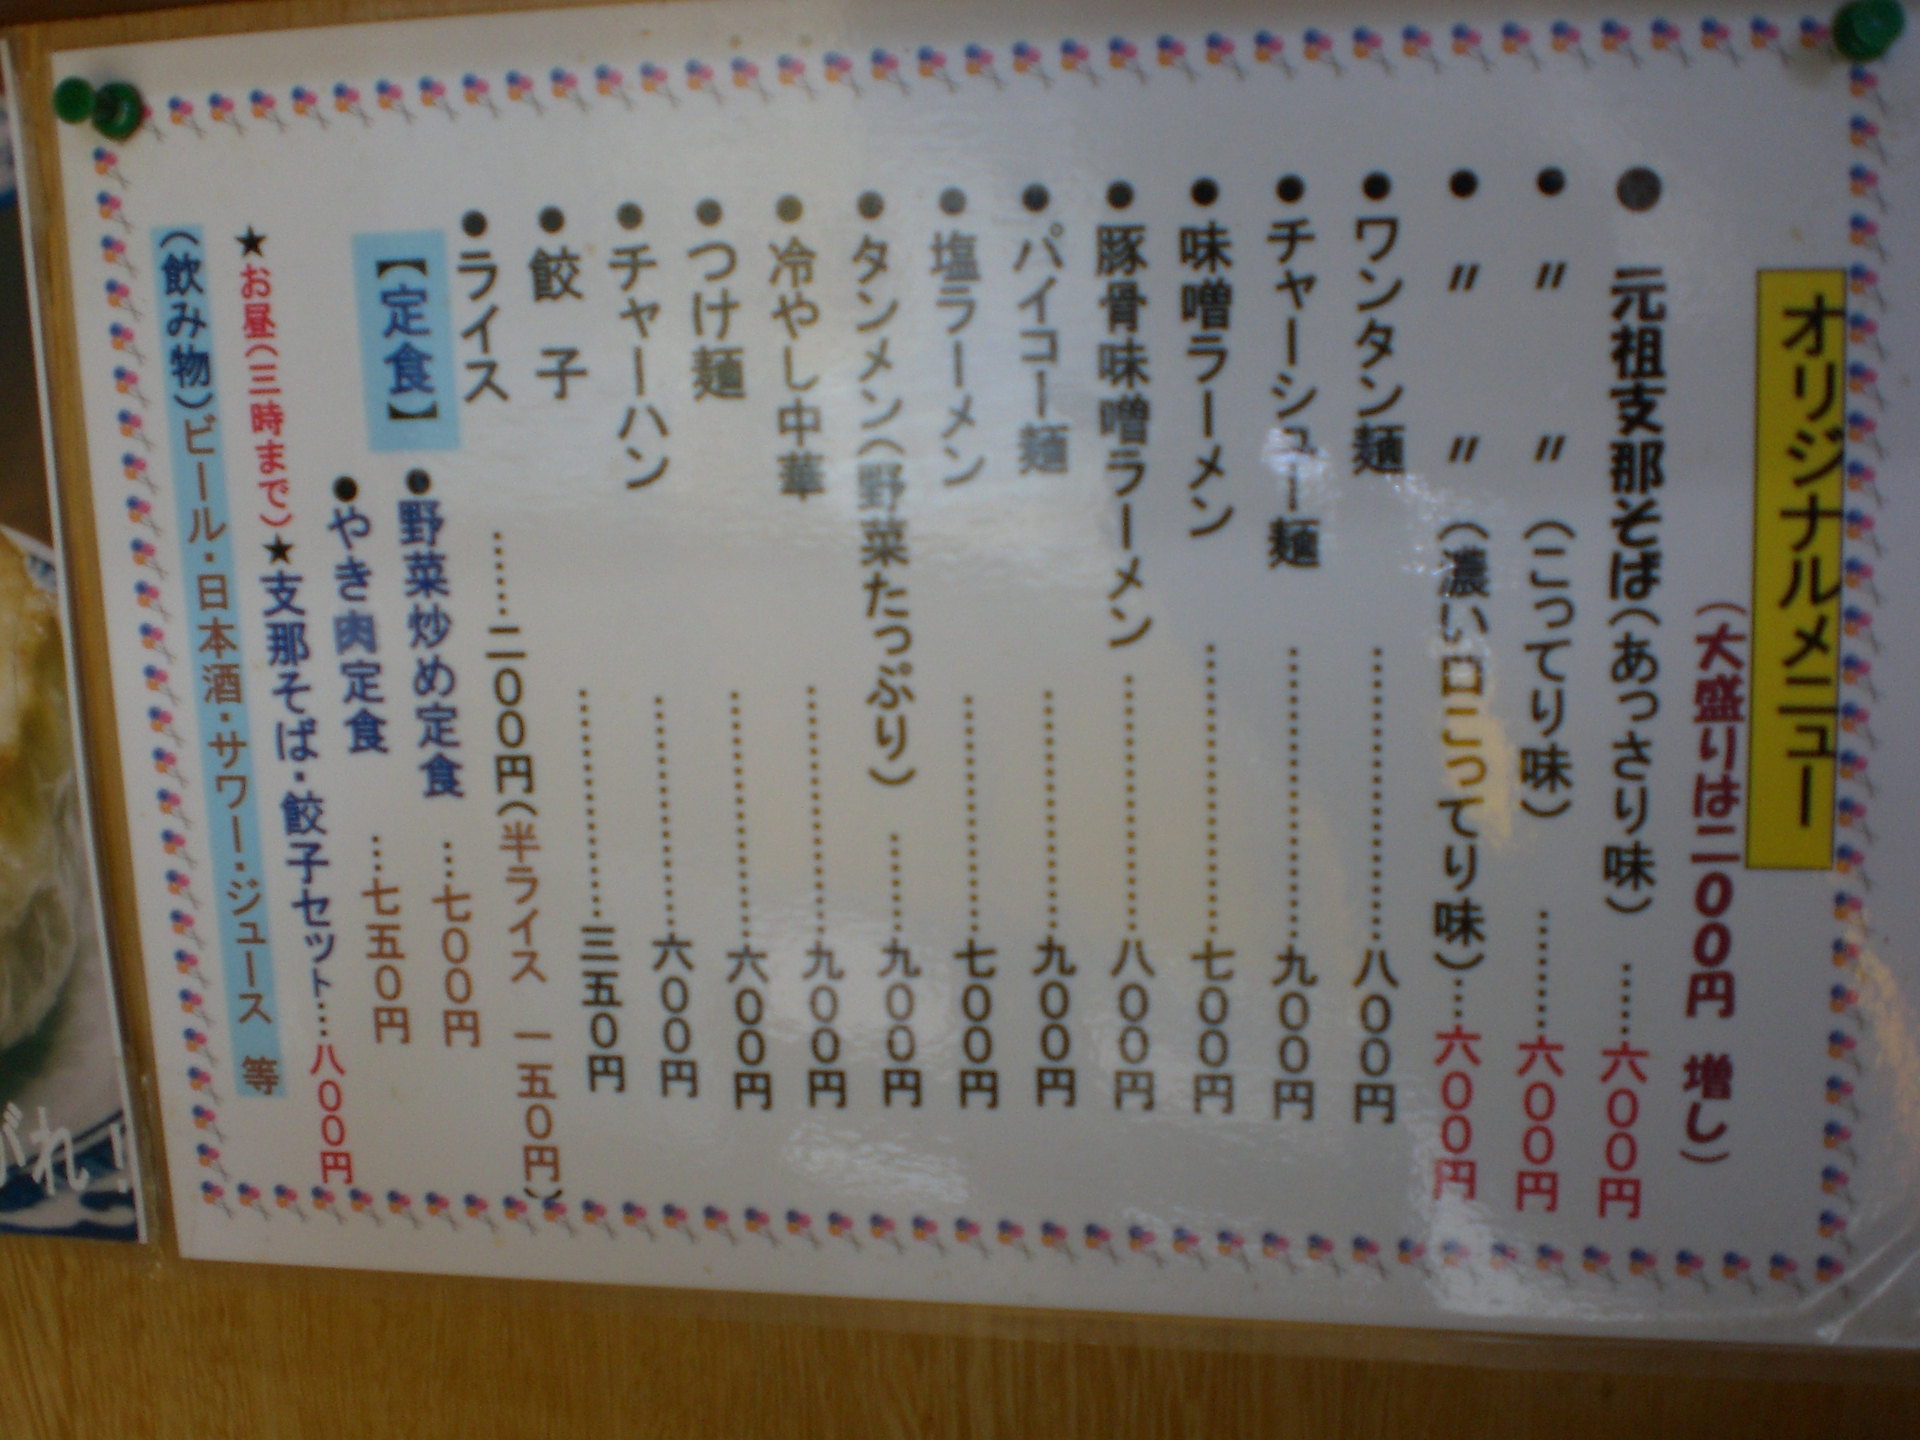 オリジナルメニュー
（大盛りは二００円 増し）
● 元祖支那そば（あっさり味）……六００円
● 〃 〃（こってり味）………六００円
● 〃 〃（濃い口こってり味）…六００円
●ワンタン麺………………八００円
●チャーシュー麺………………九００円
●味噌ラーメン………………七００円
●豚骨味噌ラーメン………………八００円
●パイコー麺………………九００円
●塩ラーメン………………七００円
●タンメン（野菜たっぷり）………九００円
●冷やし中華………………九００円
●つけ麺………………六００円
●チャーハン………………六００円
●餃 子………………三五０円
●ライス………二００円（半ライス 一五０円）
【定食】 ●野菜炒め定食 …七００円
●やき肉定食 …七五０円
★お昼（三時まで）★支那そば・餃子セット…八００円
（飲み物）ビール・日本酒・サワー・ジュース 等
がれ！